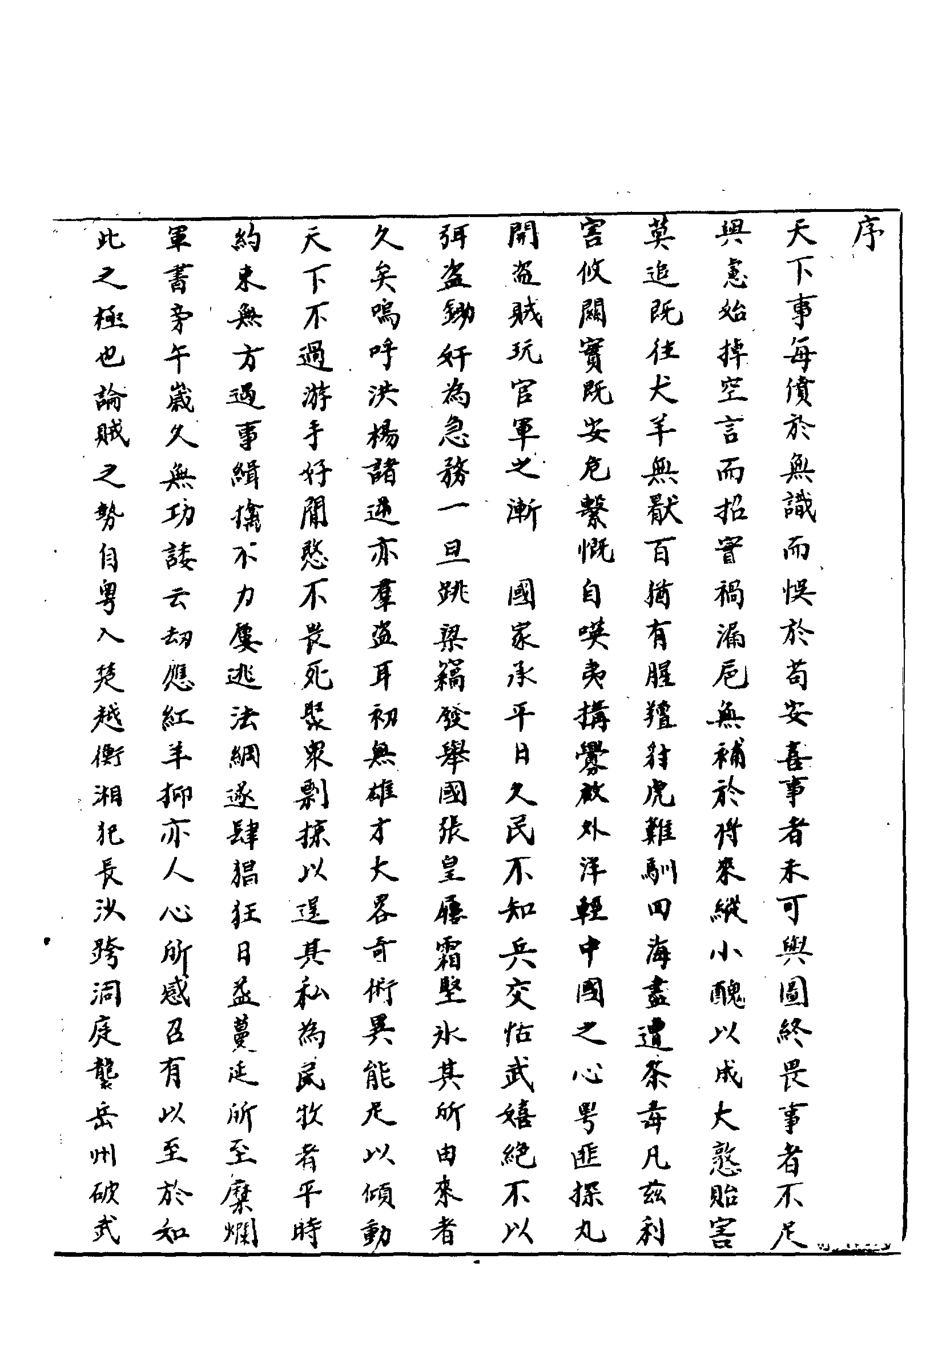 序
天下事每僨於無識而悞於苟安喜事者未可與圖終畏事者不足
與慮始掉空言而招實禍漏卮無補於將來縱小醜以成大憝貽害
莫追既往犬羊無厭百猶有腥羶豺虎難馴四海盡遭荼毒凡茲利
害攸關實既安危繫慨自嘆夷搆釁啟外洋輕中國之心粤匪探丸
開盜賊玩官軍之漸　國家承平日久民不知兵交恬武嬉絕不以
弭盜鋤奸為急務一旦跳梁竊發舉國張皇履霜堅氷其所由來者
久矣嗚呼洪楊諸逆亦羣盜耳初無雄才大畧奇術異能足以傾動
天下不過游手好閒愍不畏死聚衆剽掠以逞其私為民牧者平時
約束無方遇事緝擒不力屢逃法網遂肆猖狂日益蔓延所至糜爛
軍書旁午嵗久無功諉云刼應紅羊抑亦人心所感召有以至於如
此之極也論賊之勢自粤入楚越衡湘犯長沙跨洞庭襲岳州破武